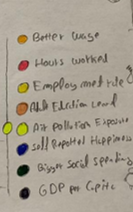 Better wage
Hours worked
Employment rate
Adult Education Level
Air Pollution Exposure
Self Reported Happiness
Bigger Social spending
GDP per Capita